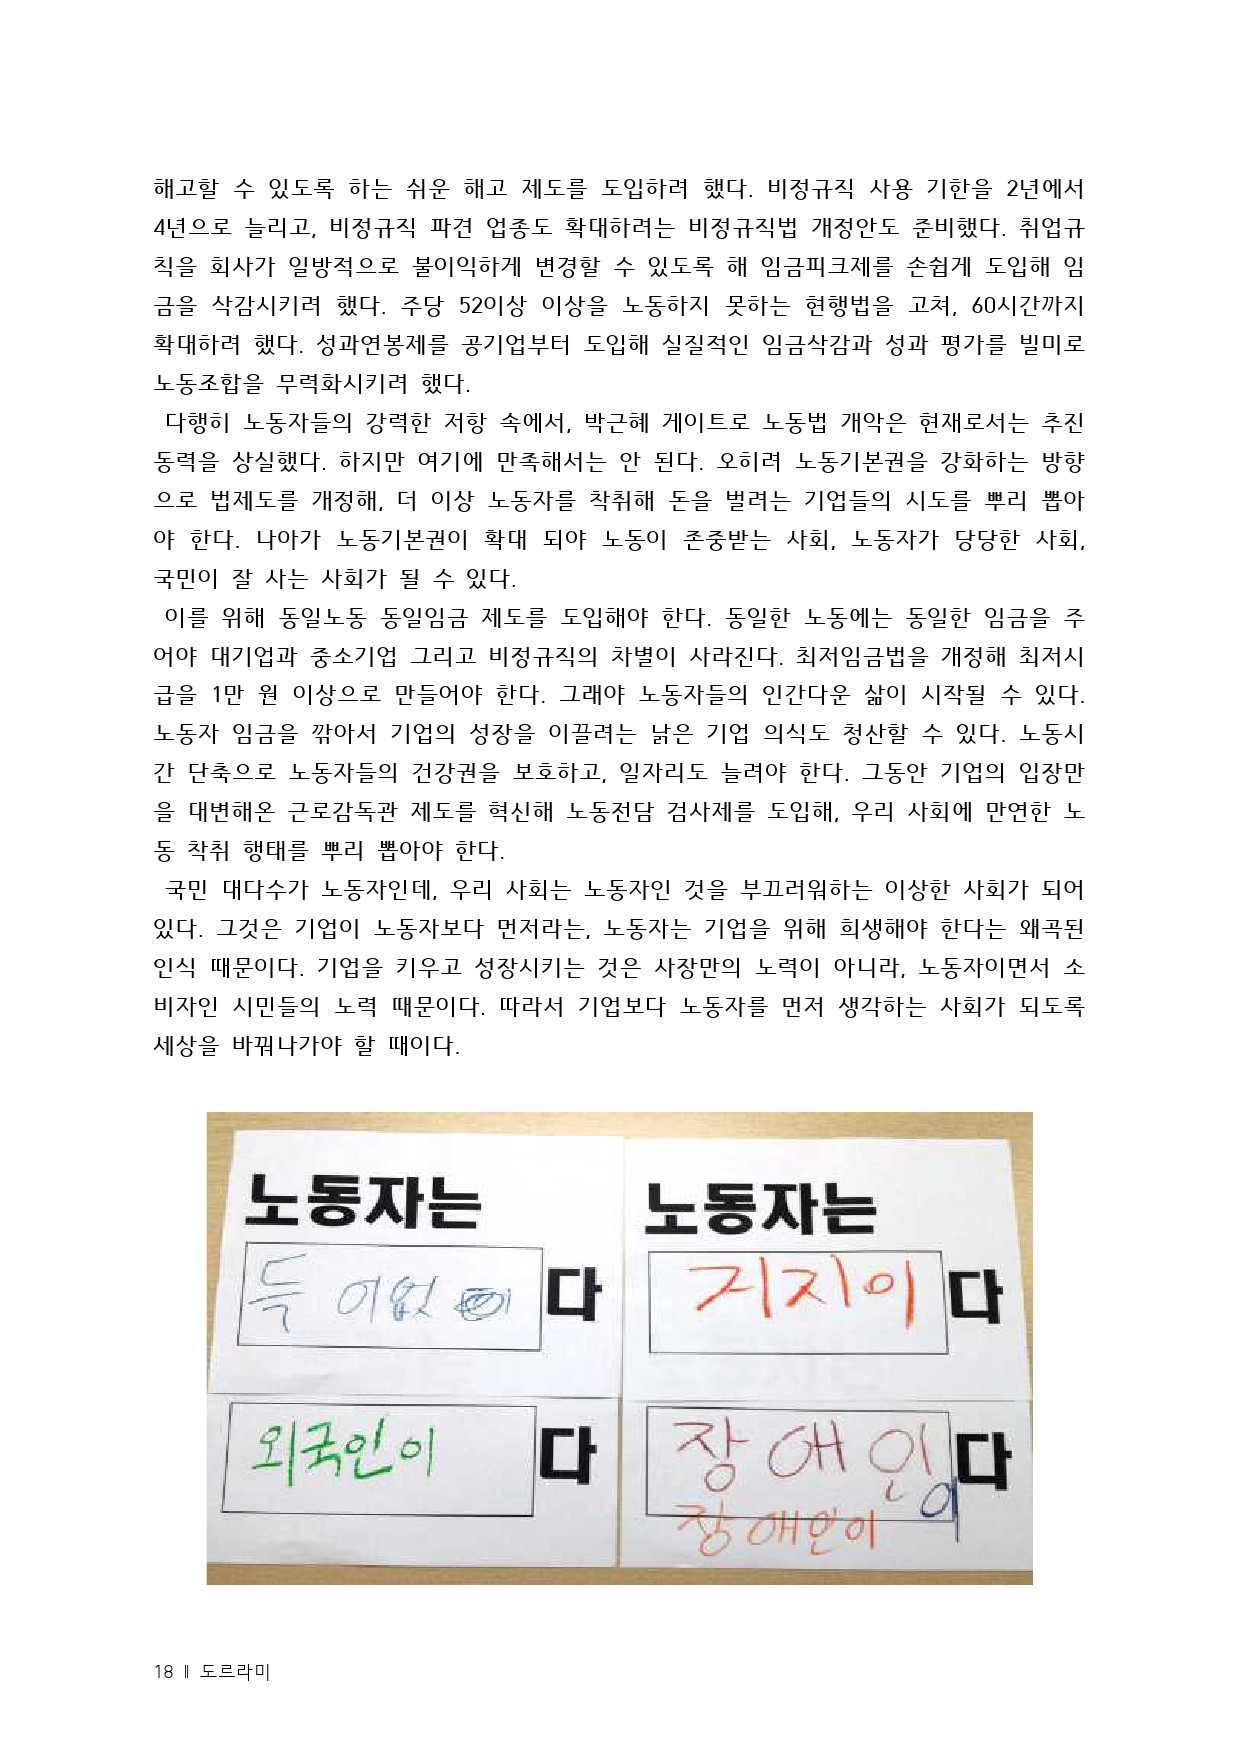 해고할 수 있도록 하는 쉬운 해고 제도를 도입하려 했다. 비정규직 사용 기한을 2년에서
4년으로 늘리고, 비정규직 파견 업종도 확대하려는 비정규직법 개정안도 준비했다. 취업규
칙을 회사가 일방적으로 불이익하게 변경할 수 있도록 해 임금피크제를 손쉽게 도입해 임
금을 삭감시키려 했다. 주당 52이상 이상을 노동하지 못하는 현행법을 고쳐, 60시간까지
확대하려 했다. 성과연봉제를 공기업부터 도입해 실질적인 임금삭감과 성과 평가를 빌미로
노동조합을 무력화시키려 했다.
다행히 노동자들의 강력한 저항 속에서, 박근혜 게이트로 노동법 개악은 현재로서는 추진
동력을 상실했다. 하지만 여기에 만족해서는 안 된다. 오히려 노동기본권을 강화하는 방향
으로 법제도를 개정해, 더 이상 노동자를 착취해 돈을 벌려는 기업들의 시도를 뿌리 뽑아
야 한다. 나아가 노동기본권이 확대 되야 노동이 존중받는 사회, 노동자가 당당한 사회,
국민이 잘 사는 사회가 될 수 있다.
이를 위해 동일노동 동일임금 제도를 도입해야 한다. 동일한 노동에는 동일한 임금을 주
어야 대기업과 중소기업 그리고 비정규직의 차별이 사라진다. 최저임금법을 개정해 최저시
급을 1만 원 이상으로 만들어야 한다. 그래야 노동자들의 인간다운 삶이 시작될 수 있다.
노동자 임금을 깎아서 기업의 성장을 이끌려는 낡은 기업 의식도 청산할 수 있다. 노동시
간 단축으로 노동자들의 건강권을 보호하고, 일자리도 늘려야 한다. 그동안 기업의 입장만
을 대변해온 근로감독관 제도를 혁신해 노동전담 검사제를 도입해, 우리 사회에 만연한 노
동 착취 행태를 뿌리 뽑아야 한다.
국민 대다수가 노동자인데, 우리 사회는 노동자인 것을 부끄러워하는 이상한 사회가 되어
있다. 그것은 기업이 노동자보다 먼저라는, 노동자는 기업을 위해 희생해야 한다는 왜곡된
인식 때문이다. 기업을 키우고 성장시키는 것은 사장만의 노력이 아니라, 노동자이면서 소
비자인 시민들의 노력 때문이다. 따라서 기업보다 노동자를 먼저 생각하는 사회가 되도록
세상을 바꿔나가야 할 때이다.
노동자는
다
노동자는
거지이 다
외국인이 다
장애인이 다
장애인이
18 ‖ 도르라미